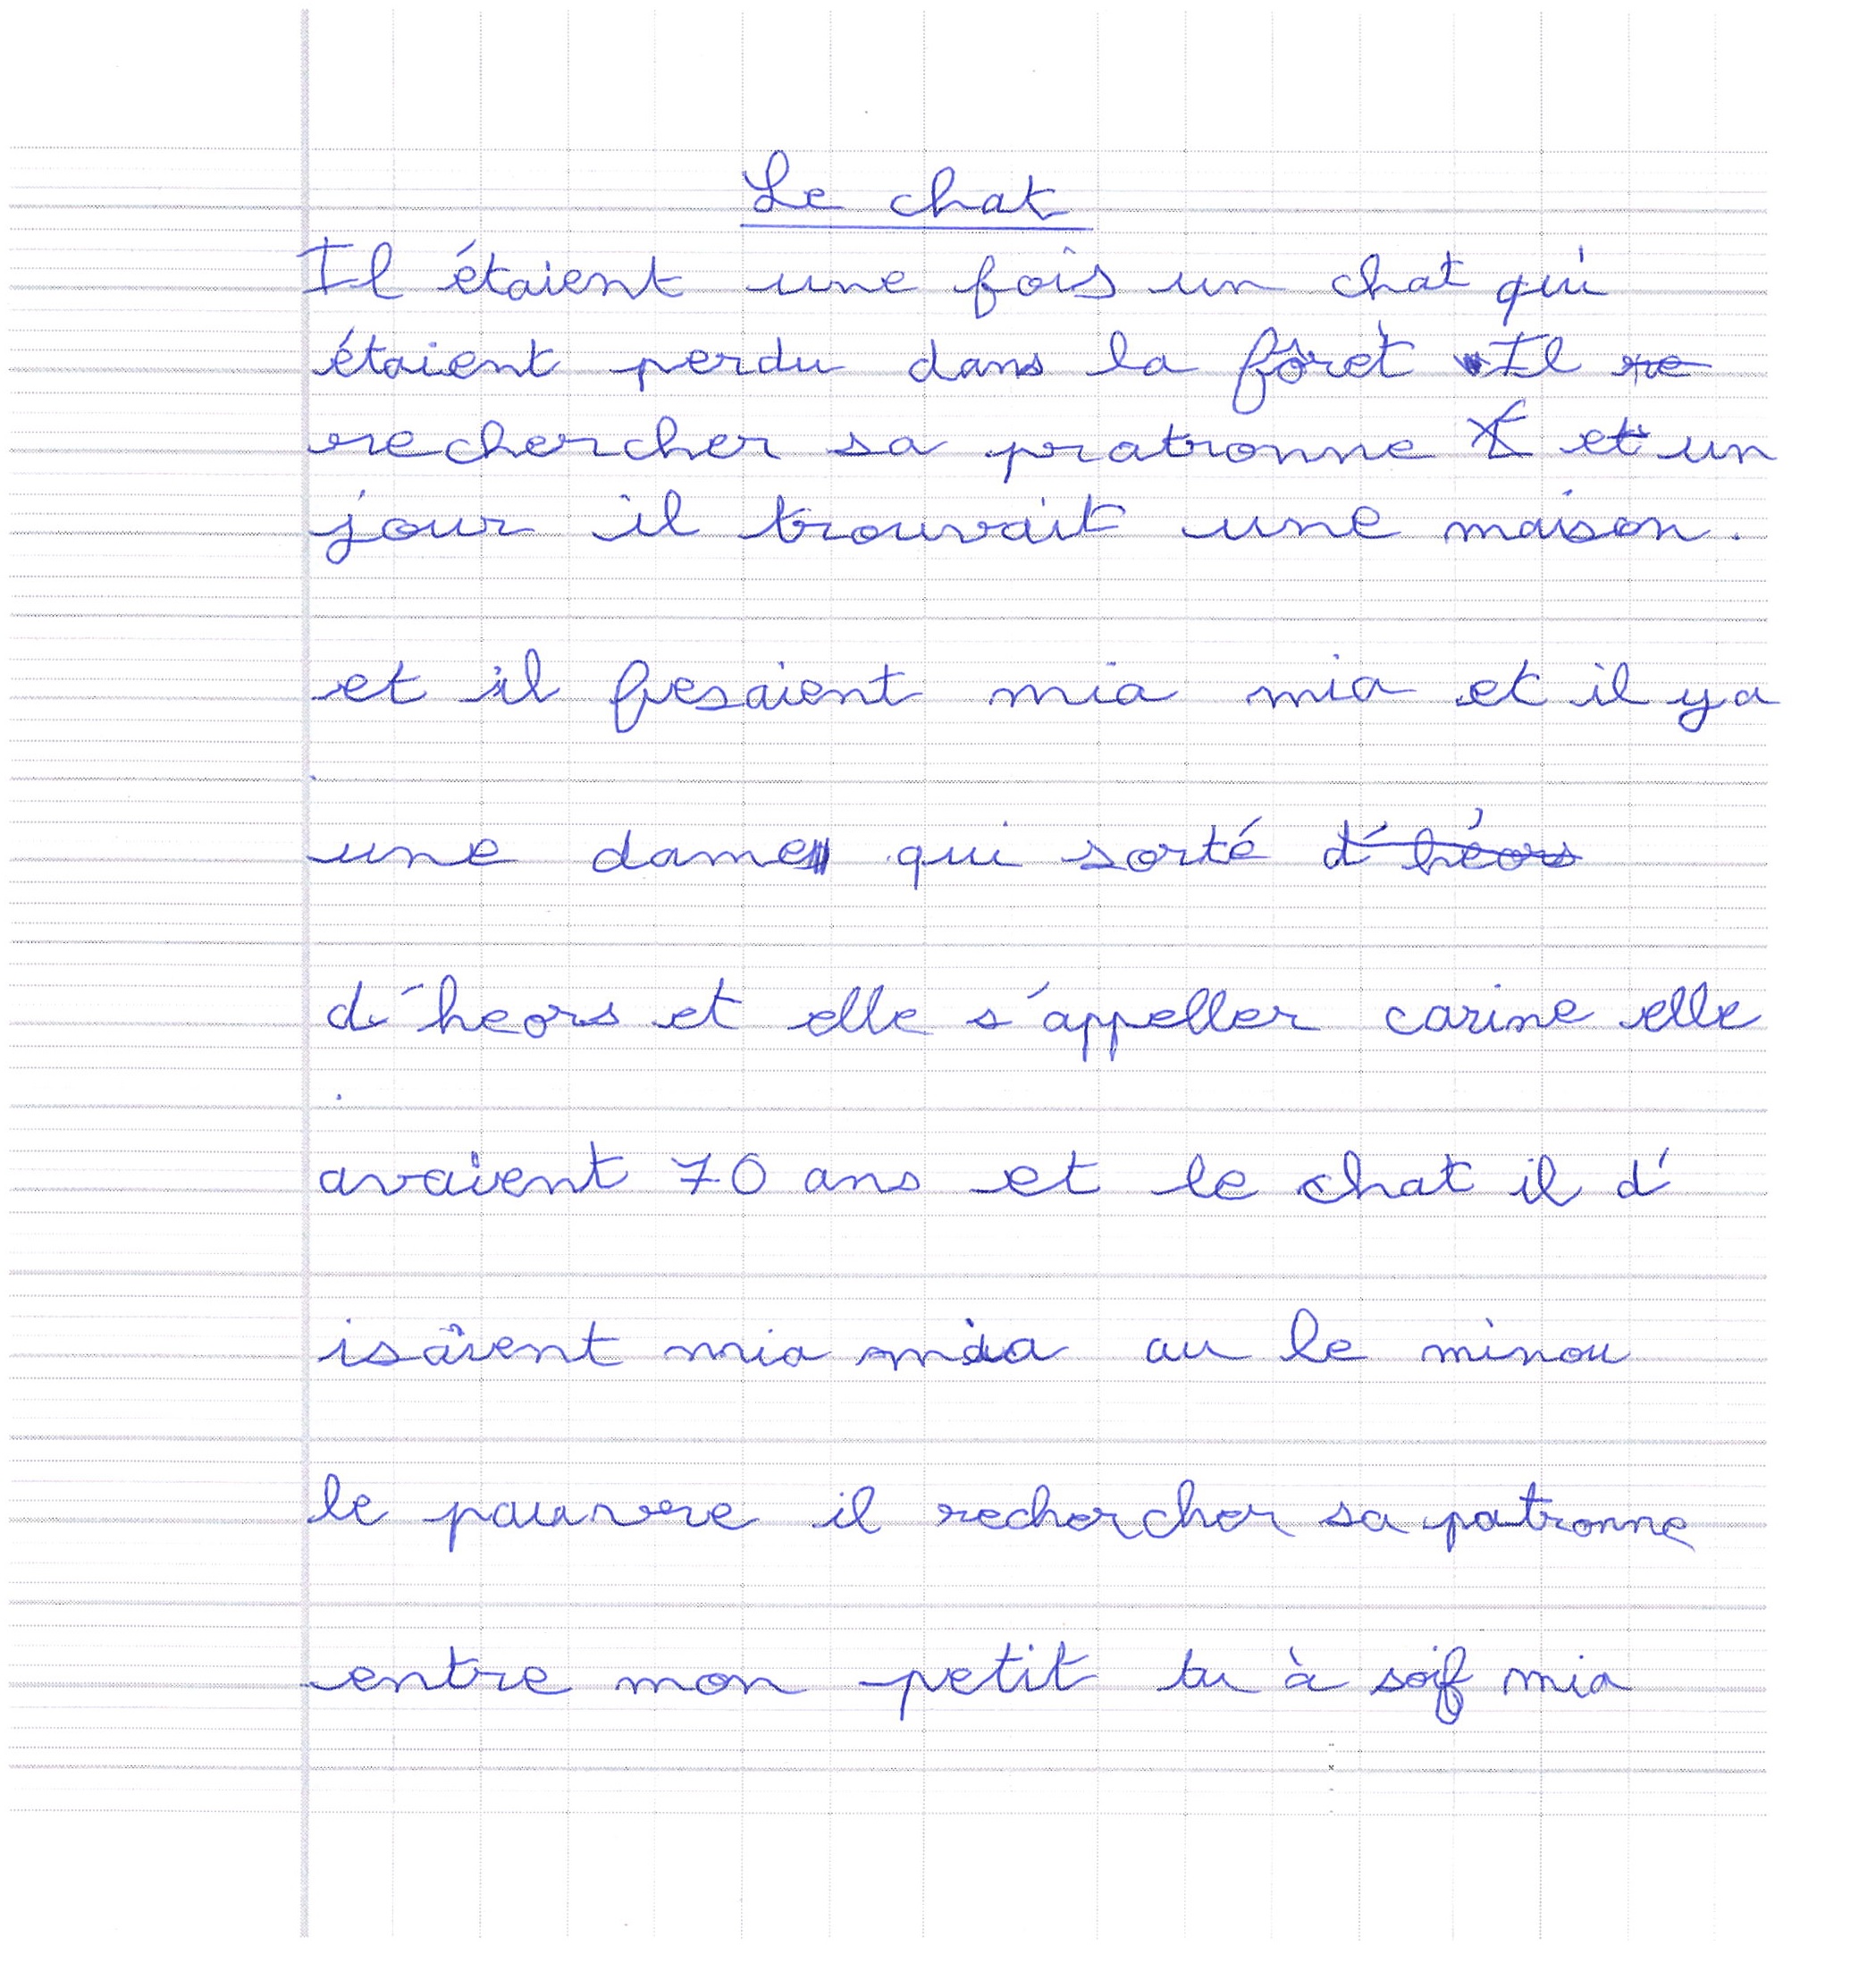 Le chat
Il étaient une fois un chat qui
étaient perdu dans la fôret Il re
rechercher sa pratronne et un
jour il trouvait une maison.
et il fesaient mia mia et il ya
une dame qui sorté d'héors
d'heors et elle s'appeller carine elle
avaient 70 ans et le chat il d'
isaient mia mia au le minou
le pauvre il rechercher sa patronne
entre mon petit tu à soif mia